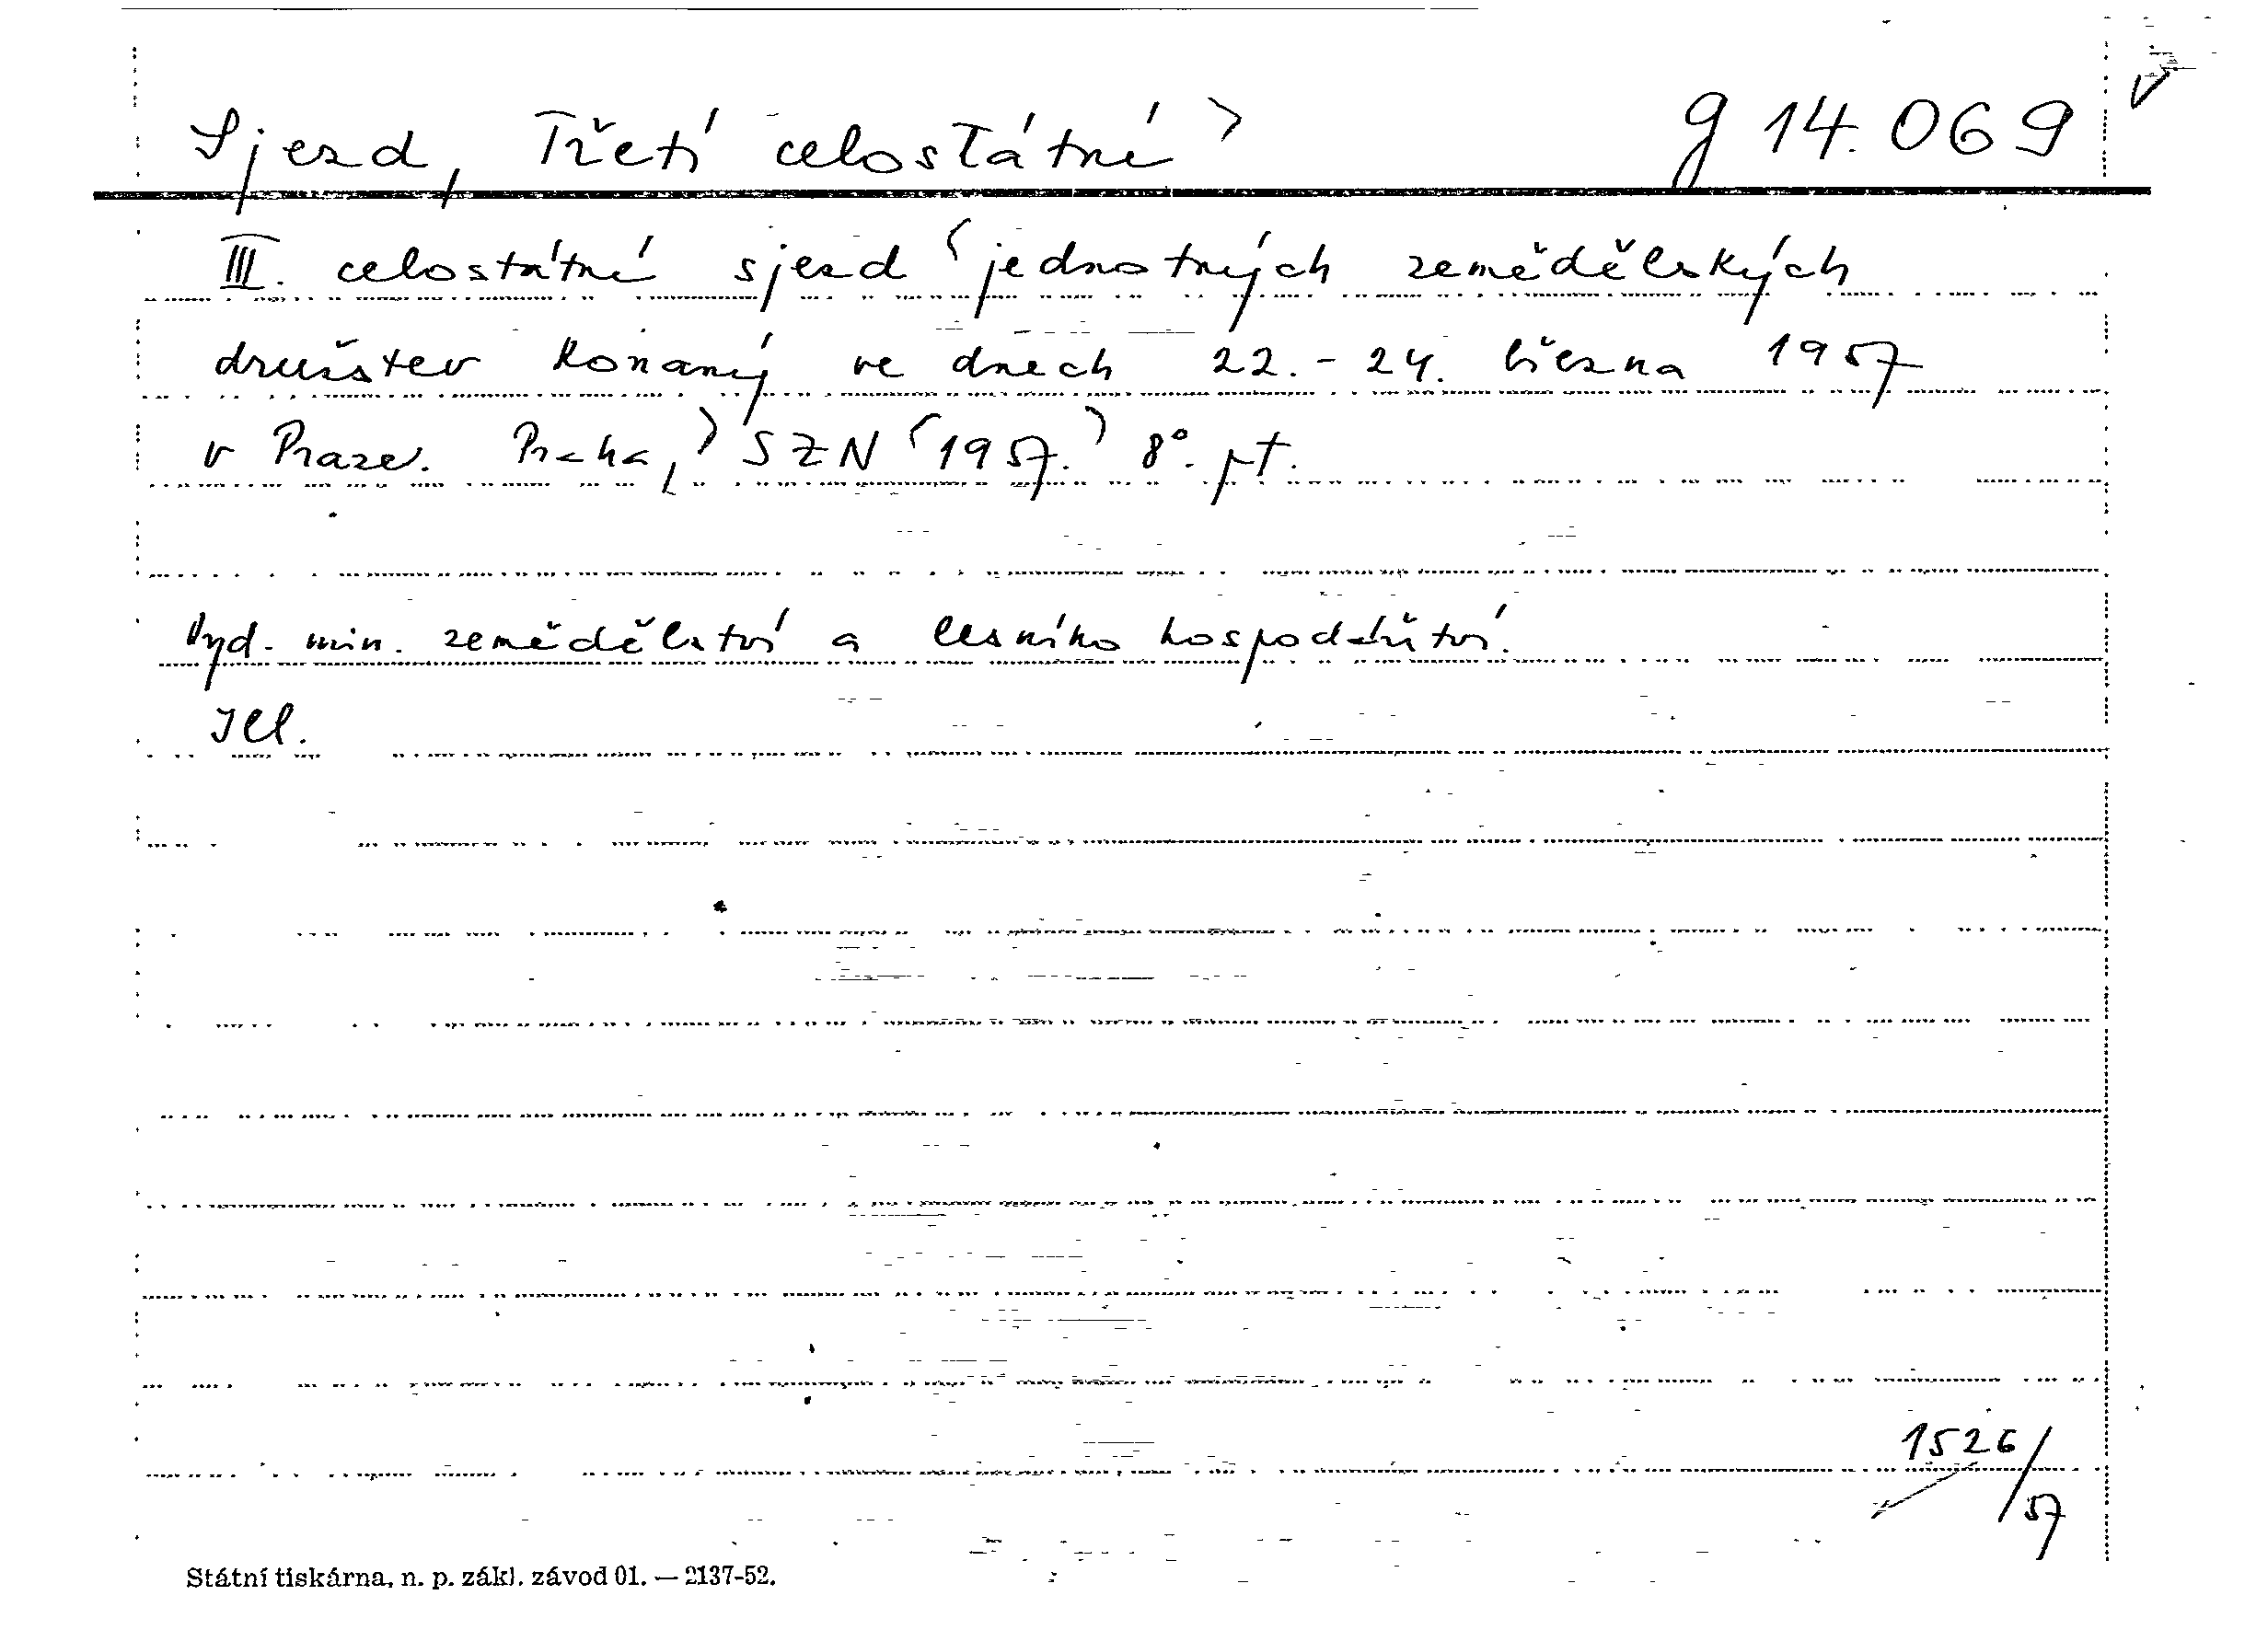 Sjezd, Třetí celostátní > g 14.069 V
III. celostátní sjezd ⟨jednotných zemědělských
družstev konaný ve dnech 22.-24. března 1957
v Praze. Praha,⟩ SZN ⟨1957.⟩ 8°. pt.
Vyd. min. zemědělství a lesního hospodářství.
Ill.
1526/57
Státní tiskárna, n. p. zákl. závod 01. — 2137-52.